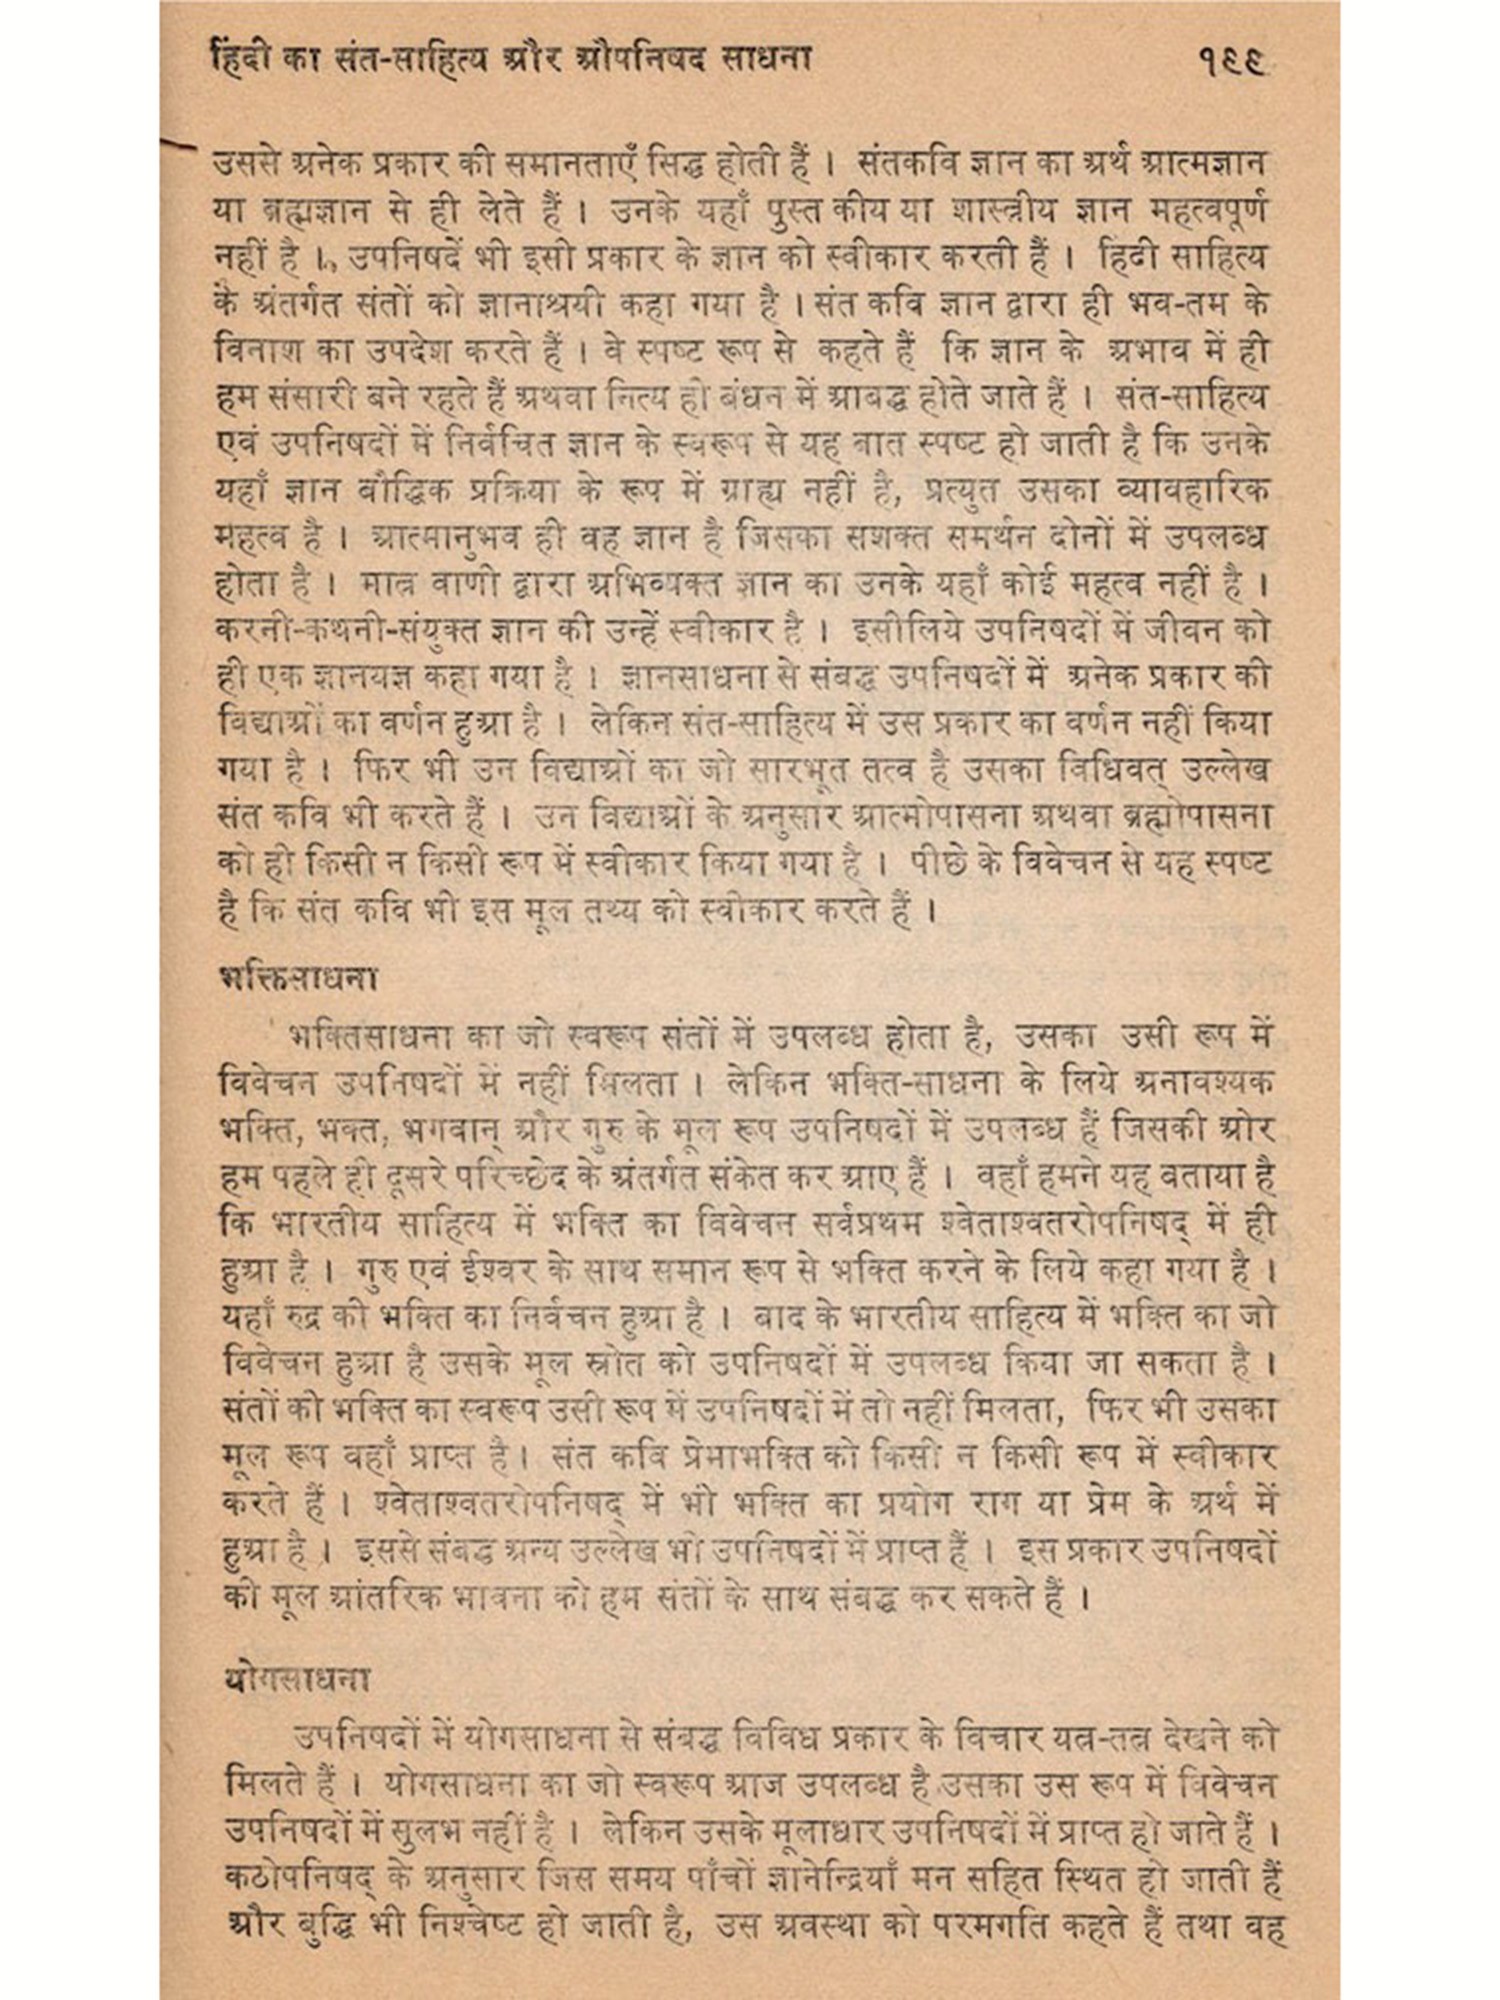 हिंदी का संत-साहित्य और औपनिषद साधना १९९
उससे अनेक प्रकार की समानताएँ सिद्ध होती हैं । संतकवि ज्ञान का अर्थ आत्मज्ञान
या ब्रह्मज्ञान से ही लेते हैं । उनके यहाँ पुस्तकीय या शास्त्रीय ज्ञान महत्वपूर्ण
नहीं है । उपनिषदें भी इसी प्रकार के ज्ञान को स्वीकार करती हैं । हिंदी साहित्य
के अंतर्गत संतों को ज्ञानाश्रयी कहा गया है । संत कवि ज्ञान द्वारा ही भव-तम के
विनाश का उपदेश करते हैं । वे स्पष्ट रूप से कहते हैं कि ज्ञान के अभाव में ही
हम संसारी बने रहते हैं अथवा नित्य ही बंधन में आबद्ध होते जाते हैं । संत-साहित्य
एवं उपनिषदों में निर्वचित ज्ञान के स्वरूप से यह बात स्पष्ट हो जाती है कि उनके
यहाँ ज्ञान बौद्धिक प्रक्रिया के रूप में ग्राह्य नहीं है, प्रत्युत उसका व्यावहारिक
महत्व है । आत्मानुभव ही वह ज्ञान है जिसका सशक्त समर्थन दोनों में उपलब्ध
होता है । मात्र वाणी द्वारा अभिव्यक्त ज्ञान का उनके यहाँ कोई महत्व नहीं है ।
करनी-कथनी-संयुक्त ज्ञान की उन्हें स्वीकार है । इसीलिये उपनिषदों में जीवन को
ही एक ज्ञानयज्ञ कहा गया है । ज्ञानसाधना से संबद्ध उपनिषदों में अनेक प्रकार की
विद्याओं का वर्णन हुआ है । लेकिन संत-साहित्य में उस प्रकार का वर्णन नहीं किया
गया है । फिर भी उन विद्याओं का जो सारभूत तत्व है उसका विधिवत् उल्लेख
संत कवि भी करते हैं । उन विद्याओं के अनुसार आत्मोपासना अथवा ब्रह्मोपासना
को ही किसी न किसी रूप में स्वीकार किया गया है । पीछे के विवेचन से यह स्पष्ट
है कि संत कवि भी इस मूल तथ्य को स्वीकार करते हैं ।
भक्तिसाधना
भक्तिसाधना का जो स्वरूप संतों में उपलब्ध होता है, उसका उसी रूप में
विवेचन उपनिषदों में नहीं मिलता । लेकिन भक्ति-साधना के लिये अनावश्यक
भक्ति, भक्त, भगवान् और गुरु के मूल रूप उपनिषदों में उपलब्ध हैं जिसकी ओर
हम पहले ही दूसरे परिच्छेद के अंतर्गत संकेत कर आए हैं । वहाँ हमने यह बताया है
कि भारतीय साहित्य में भक्ति का विवेचन सर्वप्रथम श्वेताश्वतरोपनिषद् में ही
हुआ है । गुरु एवं ईश्वर के साथ समान रूप से भक्ति करने के लिये कहा गया है ।
यहाँ रुद्र की भक्ति का निर्वचन हुआ है । बाद के भारतीय साहित्य में भक्ति का जो
विवेचन हुआ है उसके मूल स्रोत को उपनिषदों में उपलब्ध किया जा सकता है ।
संतों की भक्ति का स्वरूप उसी रूप में उपनिषदों में तो नहीं मिलता, फिर भी उसका
मूल रूप वहाँ प्राप्त है । संत कवि प्रेमाभक्ति को किसी न किसी रूप में स्वीकार
करते हैं । श्वेताश्वतरोपनिषद् में भी भक्ति का प्रयोग राग या प्रेम के अर्थ में
हुआ है । इससे संबद्ध अन्य उल्लेख भी उपनिषदों में प्राप्त हैं । इस प्रकार उपनिषदों
की मूल आंतरिक भावना को हम संतों के साथ संबद्ध कर सकते हैं ।
योगसाधना
उपनिषदों में योगसाधना से संबद्ध विविध प्रकार के विचार यत्र-तत्र देखने को
मिलते हैं । योगसाधना का जो स्वरूप आज उपलब्ध है उसका उस रूप में विवेचन
उपनिषदों में सुलभ नहीं है । लेकिन उसके मूलाधार उपनिषदों में प्राप्त हो जाते हैं ।
कठोपनिषद् के अनुसार जिस समय पाँचों ज्ञानेन्द्रियाँ मन सहित स्थित हो जाती हैं
और बुद्धि भी निश्चेष्ट हो जाती है, उस अवस्था को परमगति कहते हैं तथा वह